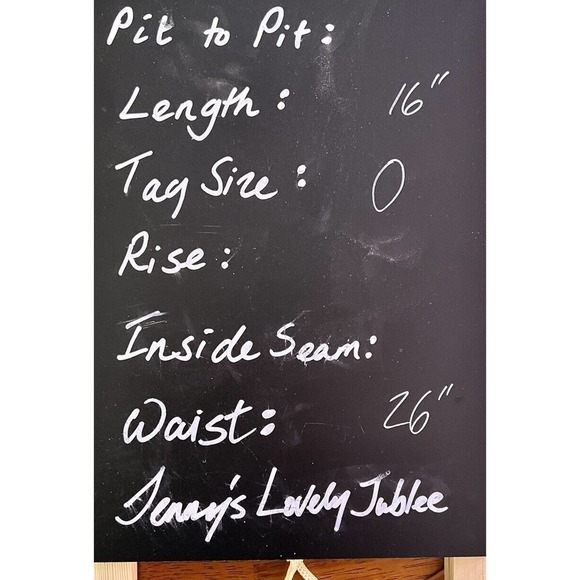 Pit to Pit:
Length: 16"
Tag Size: 0
Rise:
Inside Seam:
Waist: 26"
Jenny's Lovely Jublee